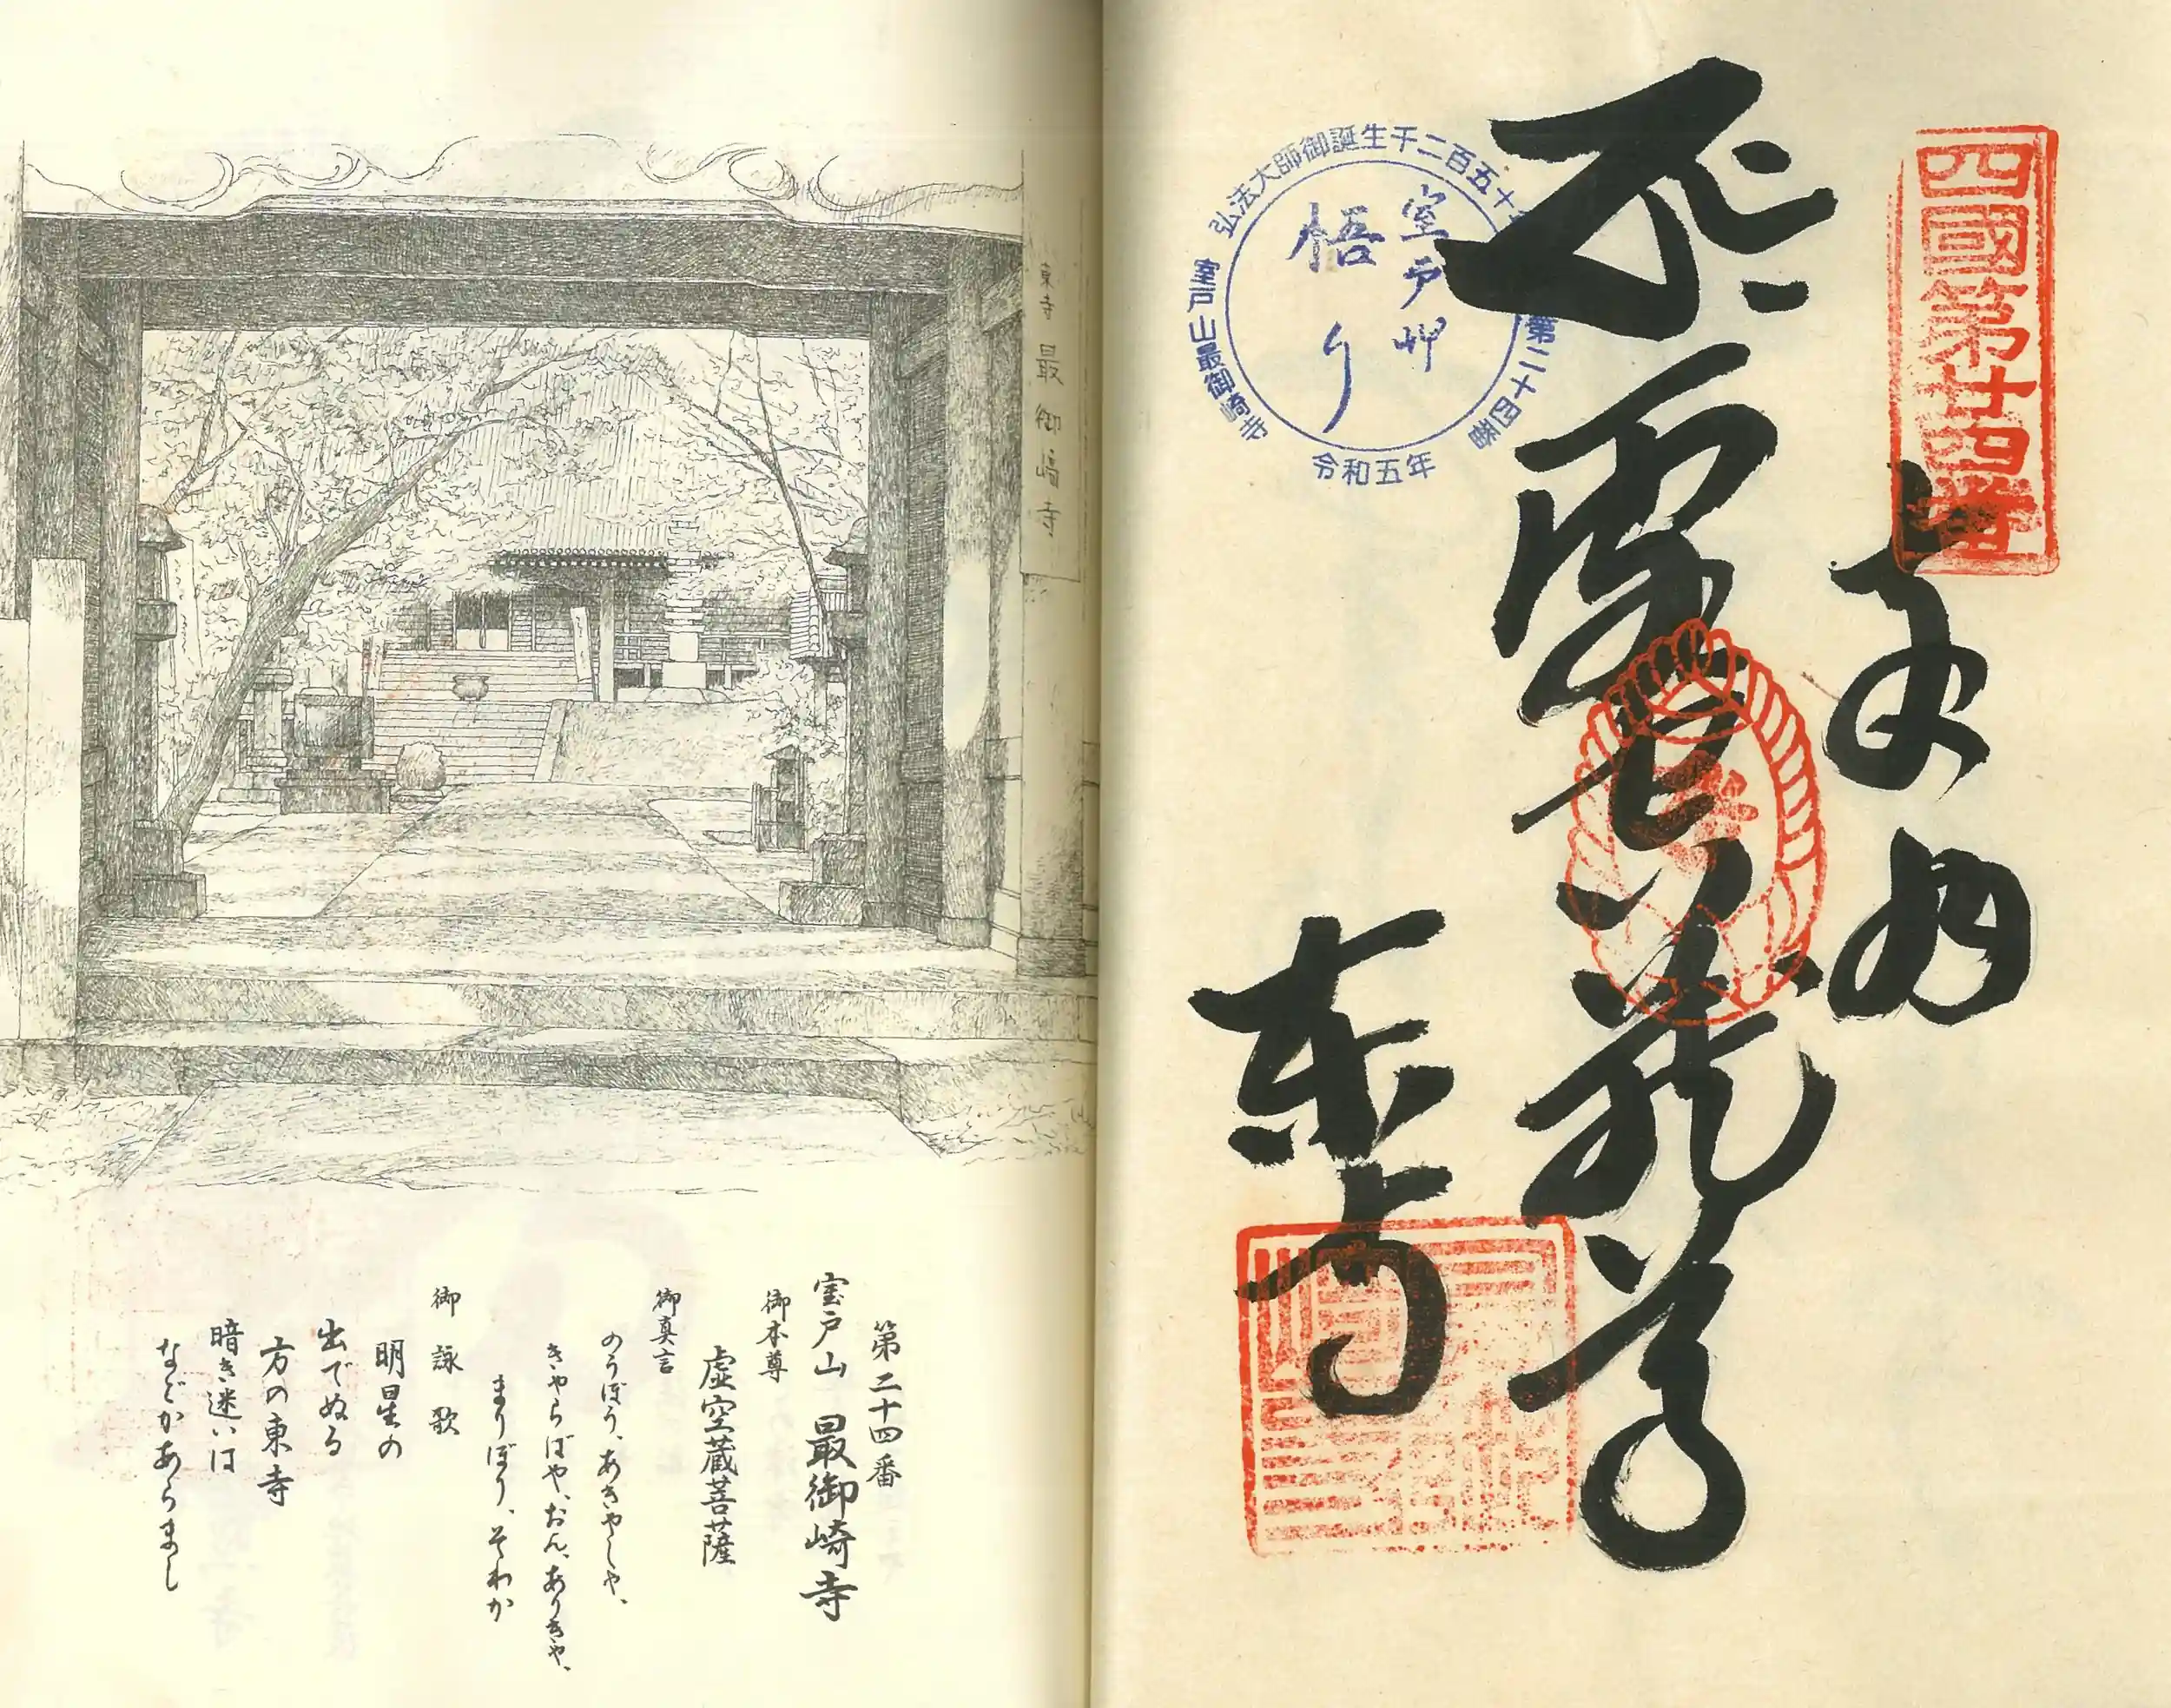 四國第廿四番
奉納
虚空蔵尊
東寺
弘法大師御誕生千二百五十年
第二十四番
室戸山最御崎寺
令和五年
室戸岬
悟り
東寺 最御崎寺
第二十四番
室戸山 最御崎寺
御本尊
虚空蔵菩薩
御真言
のうぼう、あきゃしゃ、
きゃらばや、おん、ありきゃ、
まりぼり、そわか
御詠歌
明星の
出でぬる
方の東寺
暗き迷いは
などかあらまし